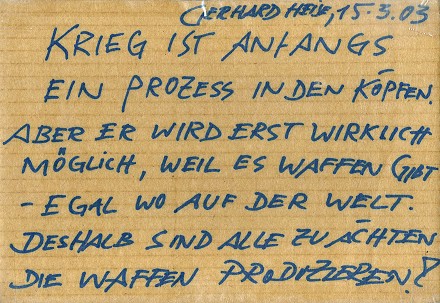 GERHARD HELLE, 15.3.03
KRIEG IST ANFANGS
EIN PROZESS IN DEN KÖPFEN.
ABER ER WIRD ERST WIRKLICH
MÖGLICH, WEIL ES WAFFEN GIBT
- EGAL WO AUF DER WELT.
DESHALB SIND ALLE ZU ÄCHTEN
DIE WAFFEN PRODUZIEREN!